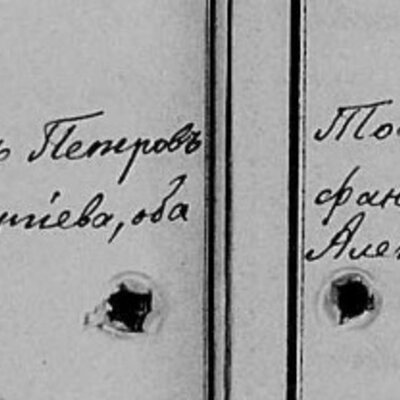 ъ Петровъ
шіева, оба
То
фан
Алек